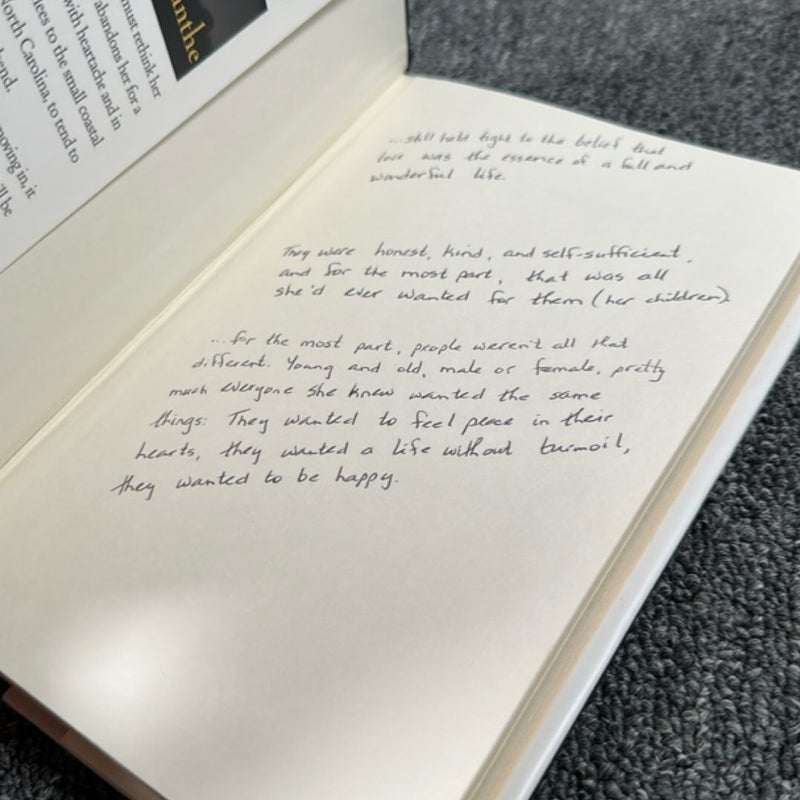 anthe
must rethink her
abandons her for a
with heartache and in
ees to the small coastal
North Carolina, to tend to
end.
moving in, it
'll be
...still held tight to the belief that
love was the essence of a full and
wonderful life.
They were honest, kind, and self-sufficient,
and for the most part, that was all
she'd ever wanted for them (her children)
...for the most part, people weren't all that
different. Young and old, male or female, pretty
much everyone she knew wanted the same
things: They wanted to feel peace in their
hearts, they wanted a life without turmoil,
they wanted to be happy.